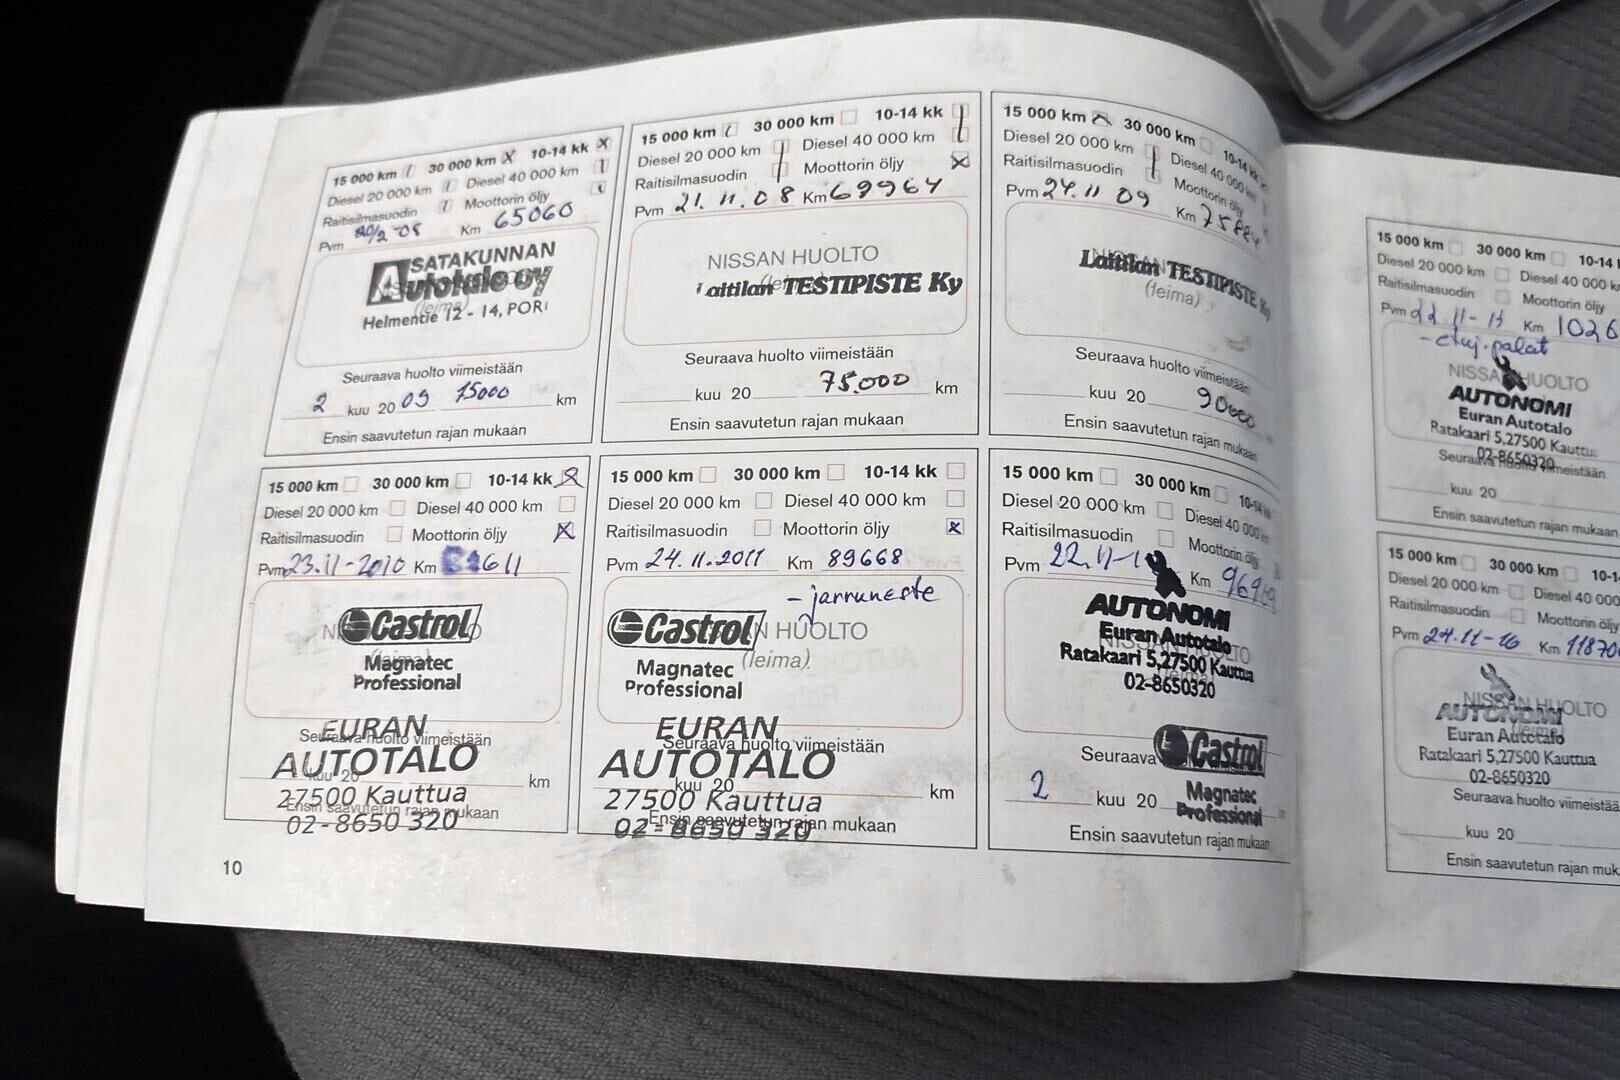 15 000 km 30 000 km 10-14 kk
Diesel 20 000 km Diesel 40 000 km
Raitisilmasuodin Moottorin öljy
Pvm Km 65060
SATAKUNNAN
Autotalo oy
(leima)
Helmentie 12 - 14, PORI
Seuraava huolto viimeistään
2 kuu 20 09 75000 km
Ensin saavutetun rajan mukaan
15 000 km 30 000 km 10-14 kk
Diesel 20 000 km Diesel 40 000 km
Raitisilmasuodin Moottorin öljy
Pvm 21. 11. 08 Km 69964
NISSAN HUOLTO
(leima)
Laitilan TESTIPISTE Ky
Seuraava huolto viimeistään
kuu 20 75.000 km
Ensin saavutetun rajan mukaan
15 000 km 30 000 km 10-14 kk
Diesel 20 000 km Diesel 40 000 km
Raitisilmasuodin Moottorin öljy
Pvm 24.11 09 Km
Laitilan TESTIPISTE Ky
(leima)
Seuraava huolto viimeistään
kuu 20 90000
Ensin saavutetun rajan mukaan
15 000 km 30 000 km 10-14 kk
Diesel 20 000 km Diesel 40 000 km
Raitisilmasuodin Moottorin öljy
Pvm 23.11-2010 Km
Castrol
Magnatec
Professional
EURAN
Seuraava huolto viimeistään
AUTOTALO
kuu 20 km
27500 Kauttua
Ensin saavutetun rajan mukaan
02-8650 320
15 000 km 30 000 km 10-14 kk
Diesel 20 000 km Diesel 40 000 km
Raitisilmasuodin Moottorin öljy
Pvm 24.11.2011 Km 89668
- jarruneste
Castrol HUOLTO
(leima)
Magnatec
Professional
EURAN
Seuraava huolto viimeistään
AUTOTALO
kuu 20 km
27500 Kauttua
Ensin saavutetun rajan mukaan
02-8650 320
15 000 km 30 000 km 10-14
Diesel 20 000 km Diesel 40 000
Raitisilmasuodin Moottorin öljy
Pvm 22.11-1 Km
AUTONOMI
Euran Autotalo
Ratakaari 5,27500 Kauttua
02-8650320
Seuraava
Castrol
2 kuu 20
Magnatec
Professional
Ensin saavutetun rajan mukaan
10
15 000 km 30 000 km 10-14
Diesel 20 000 km Diesel 40 000
Raitisilmasuodin Moottorin öljy
Pvm Km 1026
NISSAN HUOLTO
AUTONOMI
Euran Autotalo
Ratakaari 5,27500 Kauttua
02-8650320
Seuraava huolto viimeistään
kuu 20
Ensin saavutetun rajan mukaan
15 000 km 30 000 km 10-1
Diesel 20 000 km Diesel 4000
Raitisilmasuodin Moottorin öljy
Pvm 24.11-16 Km 11870
NISSAN HUOLTO
AUTONOMI
Euran Autotalo
Ratakaari 5,27500 Kauttua
02-8650320
Seuraava huolto viimeistää
kuu 20
Ensin saavutetun rajan muk